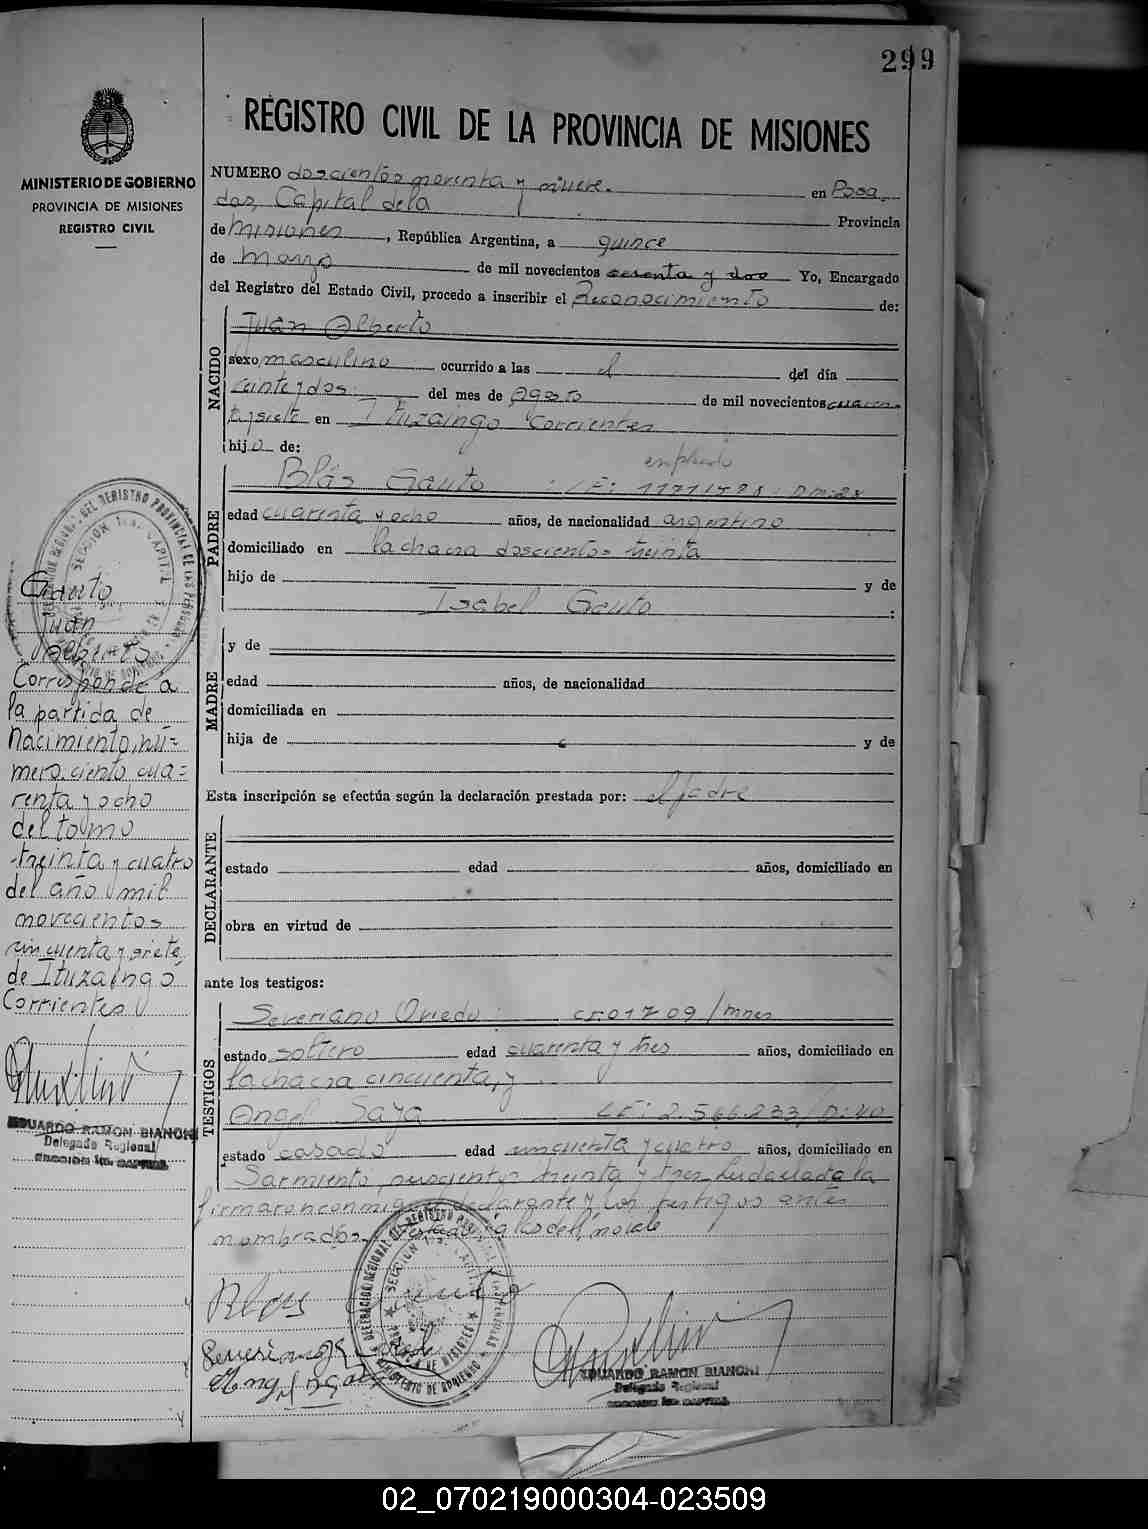 299
REGISTRO CIVIL DE LA PROVINCIA DE MISIONES
MINISTERIO DE GOBIERNO
PROVINCIA DE MISIONES
REGISTRO CIVIL
NUMERO doscientos noventa y nueve. en Posa
das, Capital de la Provincia
de Misiones, República Argentina, a quince
de marzo de mil novecientos sesenta y dos Yo, Encargado
del Registro del Estado Civil, procedo a inscribir el Reconocimiento de:
NACIDO
Juan Alberto
sexo masculino ocurrido a las el del día
veinte y dos del mes de Agosto de mil novecientos cuaren
ta y siete en Ituzaingo Corrientes
hijo de:
empleado
PADRE
Blás Gauto
edad cuarenta y ocho años, de nacionalidad argentino
domiciliado en la chacra doscientos treinta
hijo de y de
Isabel Gauto
MADRE
y de
edad años, de nacionalidad
domiciliada en
hija de y de
Esta inscripción se efectúa según la declaración prestada por: el padre
DECLARANTE
estado edad años, domiciliado en
obra en virtud de
ante los testigos:
TESTIGOS
Severiano Oviedo
estado soltero edad cuarenta y tres años, domiciliado en
la chacra cincuenta, y
Angel Saya CE: 2.566.233/D:40
estado casado edad cincuenta y cuatro años, domiciliado en
Sarmiento treinta y tres la
firmaron conmigo el declarante y los testigos antes
nombrados.
Blas Gauto
EDUARDO RAMON BIANCHI
Delegado Regional
SECCION 1ra. CAPITAL
Gauto
Juan
Alberto
Corresponde a
la partida de
Nacimiento, nú=
mero ciento cua=
renta y ocho
del tomo
treinta y cuatro
del año mil
novecientos
cincuenta y siete,
de Ituzaingo
Corrientes
EDUARDO RAMON BIANCHI
Delegado Regional
SECCION 1ra. CAPITAL
02_070219000304-023509